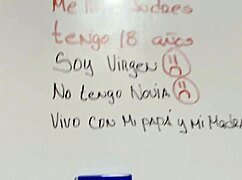 Me
tengo 18 años
Soy Virgen
No tengo Novia
Vivo con Mi papá y Mi